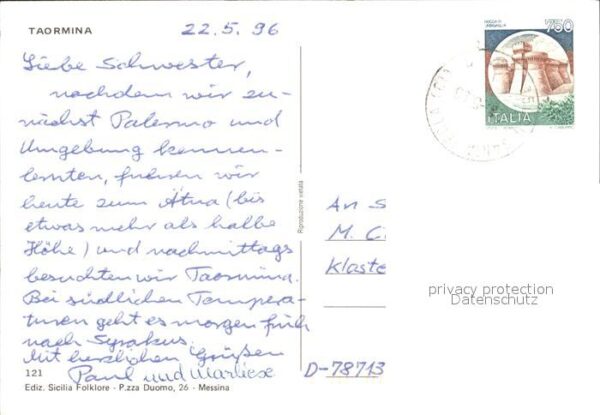 TAORMINA
22.5.96
Liebe Schwester,
nachdem wir zu-
nächst Palermo und
Umgebung kennen-
lernten, fuhren wir
heute zum Ätna (bis
etwas mehr als halbe
Höhe) und nachmittags
besuchten wir Taormina.
Bei südlichen Tempera-
turen geht es morgen früh
nach Syrakus.
Mit herzlichen Grüßen
Paul und Marliese
121
Ediz. Sicilia Folklore - P.zza Duomo, 26 - Messina
Riproduzione vietata
ROCCA DI
750
ITALIA
An S
M. C
Kloste
privacy protection
Datenschutz
D-78713